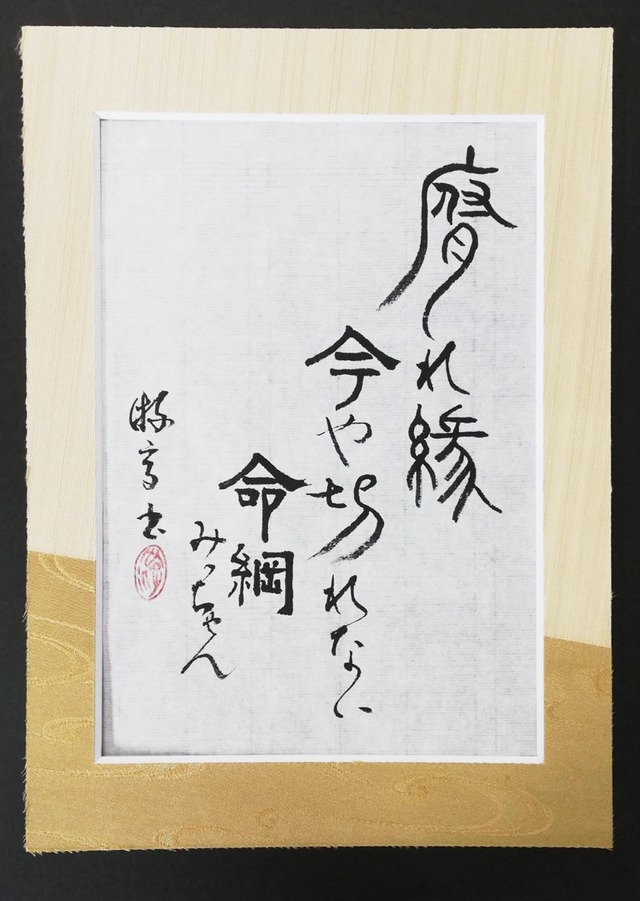 腐れ縁
今や切れない
命綱
みっちゃん
書